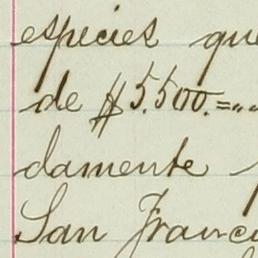 especies que
de $5.500.=..
damente
San Franci